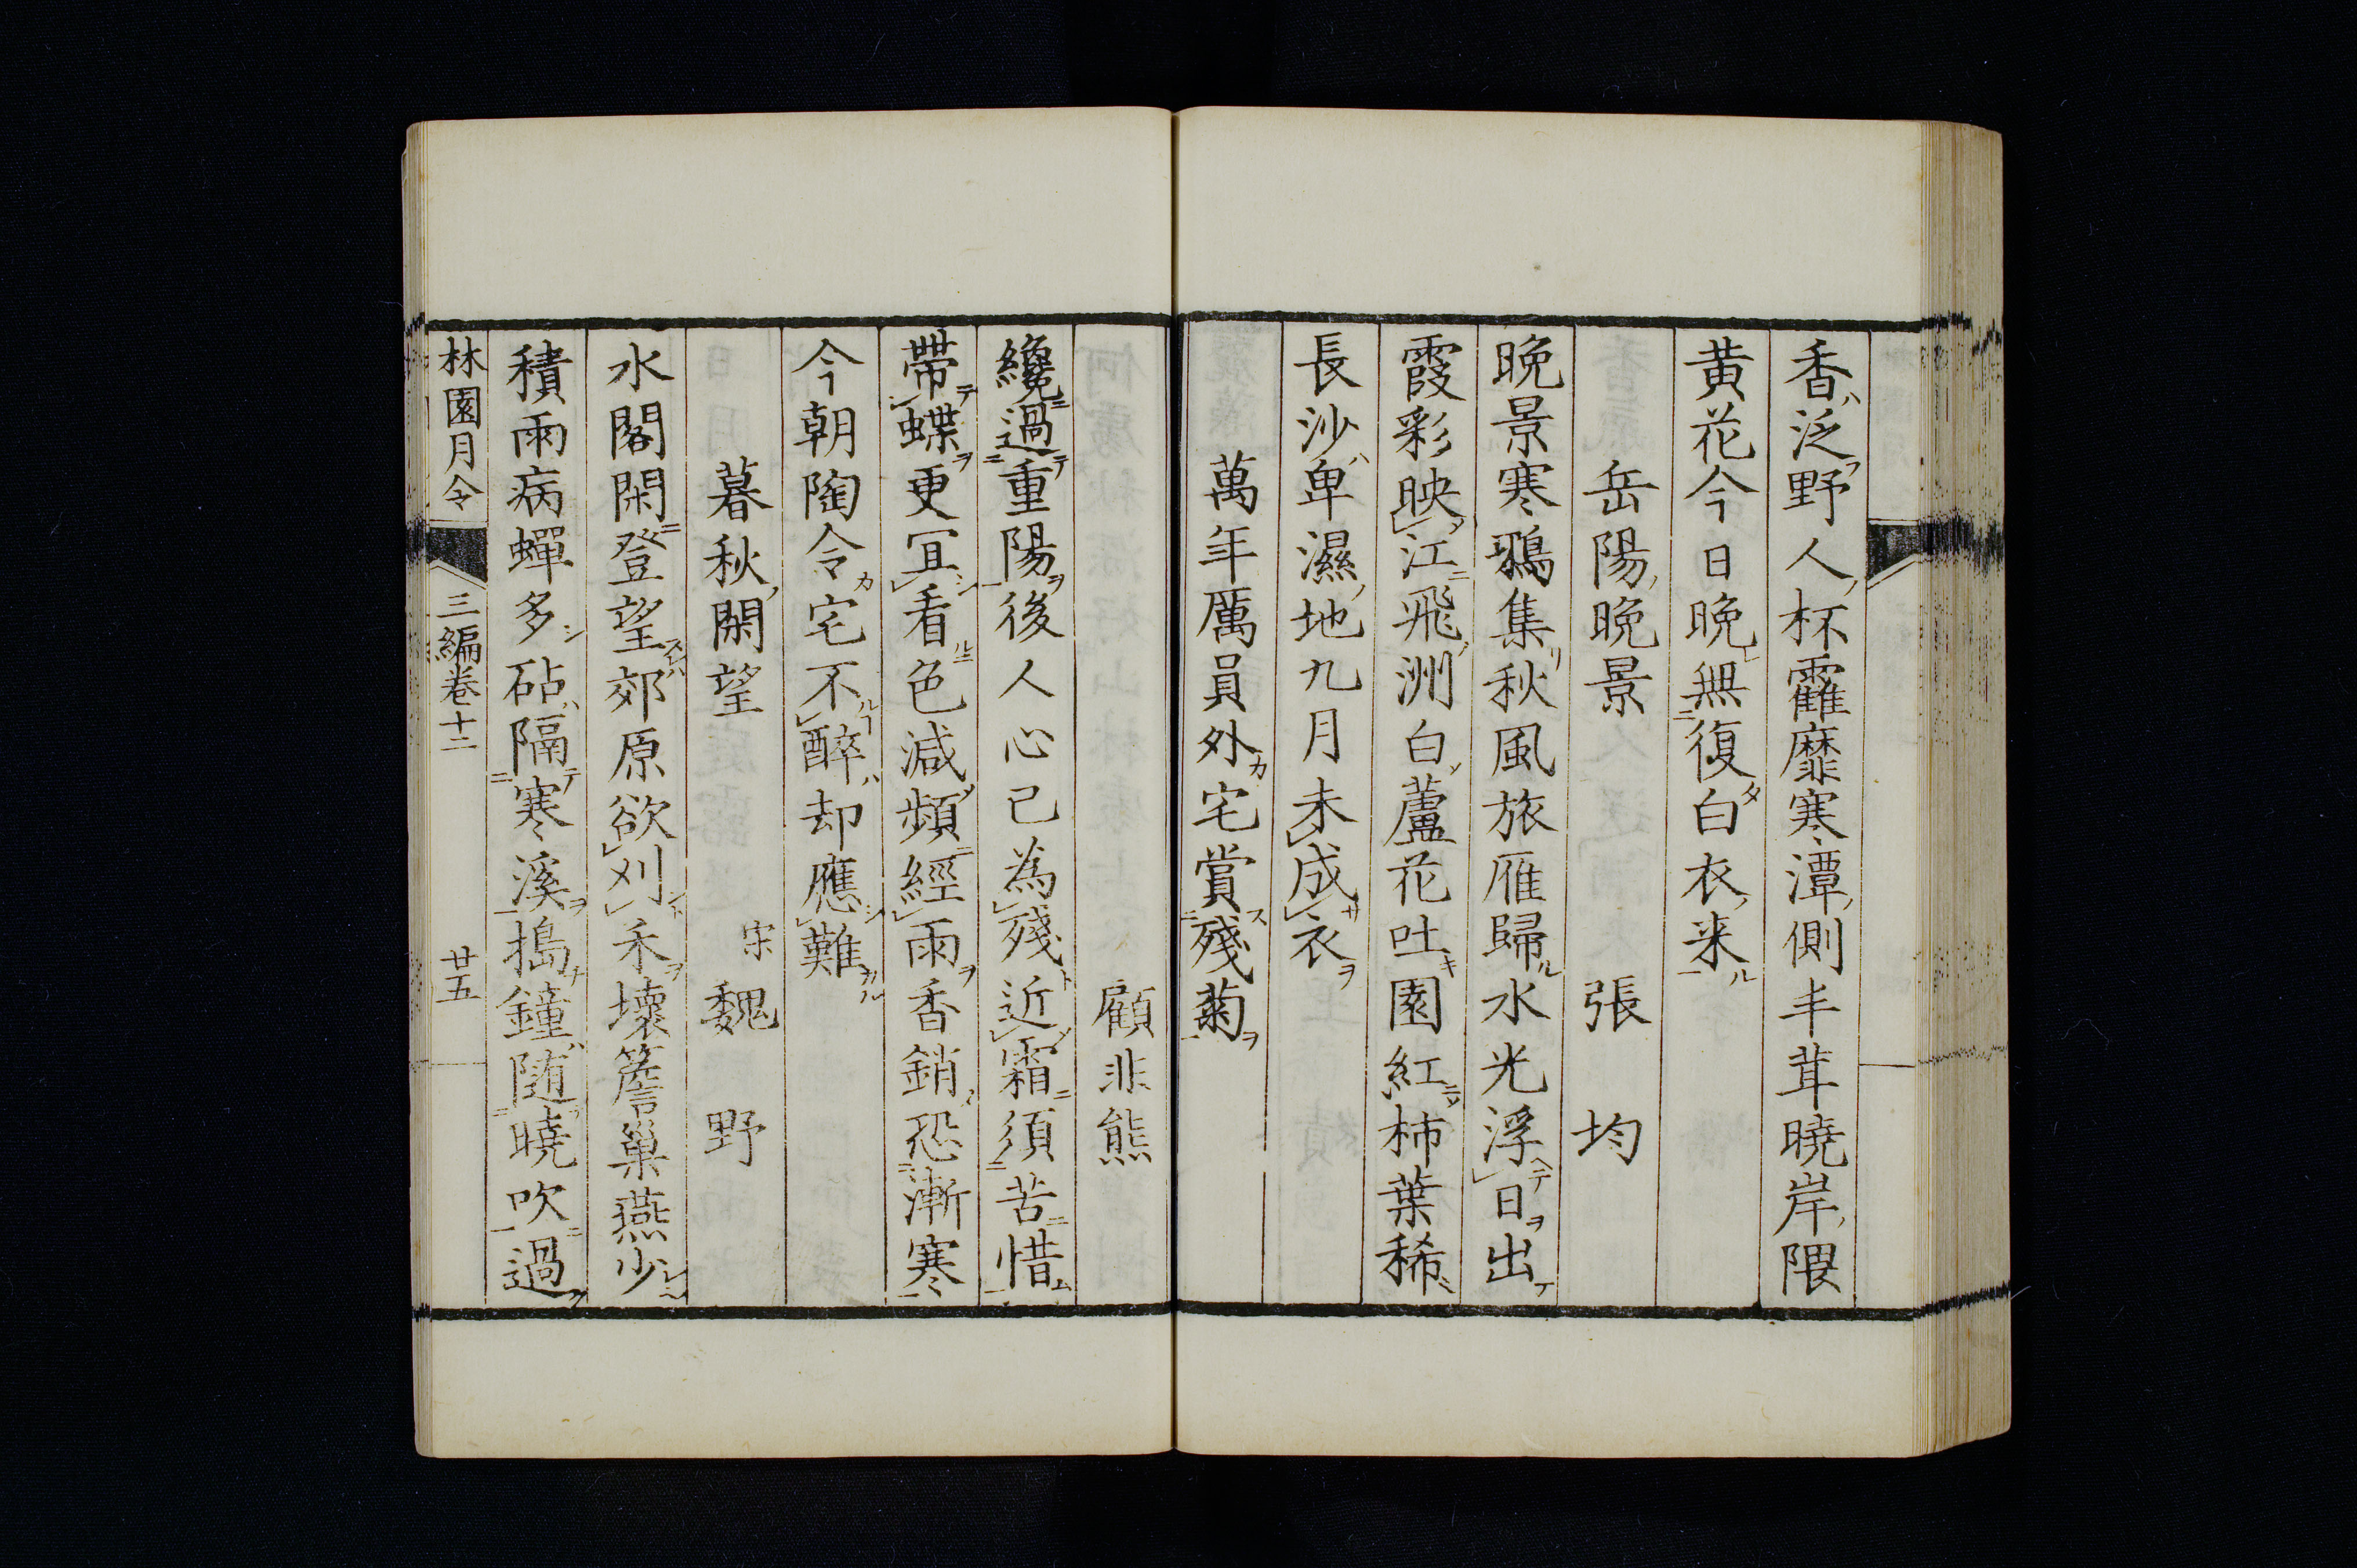 香泛野人杯靃靡寒潭側丰茸曉岸隈
黃花今日晚無復白衣来
岳陽晩景 張均
晚景寒鴉集秋風旅雁歸水光浮日出
霞彩映江飛洲白蘆花吐園紅柿葉稀
長沙卑濕地九月未成衣
萬年厲員外宅賞殘菊
顧非熊
纔過重陽後人心已為殘近霜須苦惜
帶蝶更冝看色減頻經雨香銷恐漸寒
今朝陶令宅不醉却應難
暮秋閑望 宋 魏野
水閣閑登望郊原欲刈禾壞簷巢燕少
積雨病蟬多砧隔寒溪搗鐘随曉吹過
林園月令 三編卷十二 廿五